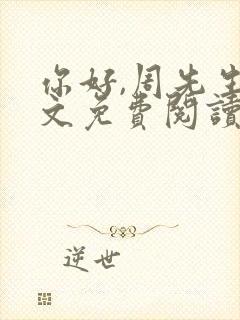 你好,周先生
文免費閱讀
逆世